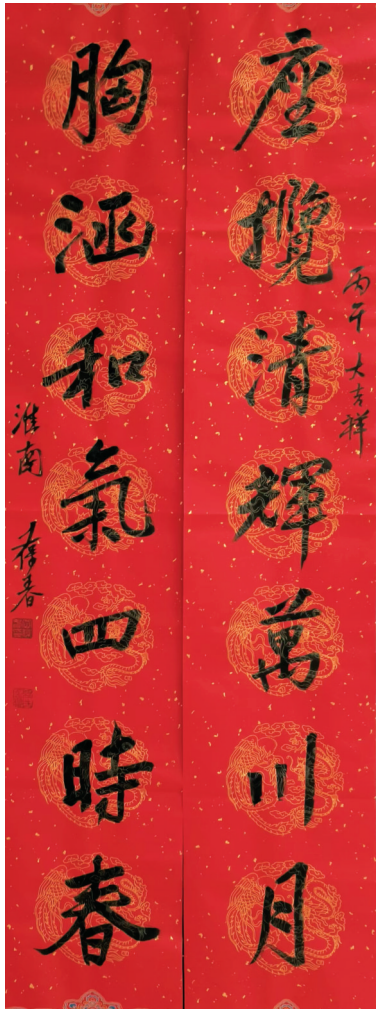 座攬清輝萬川月
丙午大吉祥
胸涵和氣四時春
淮南
春